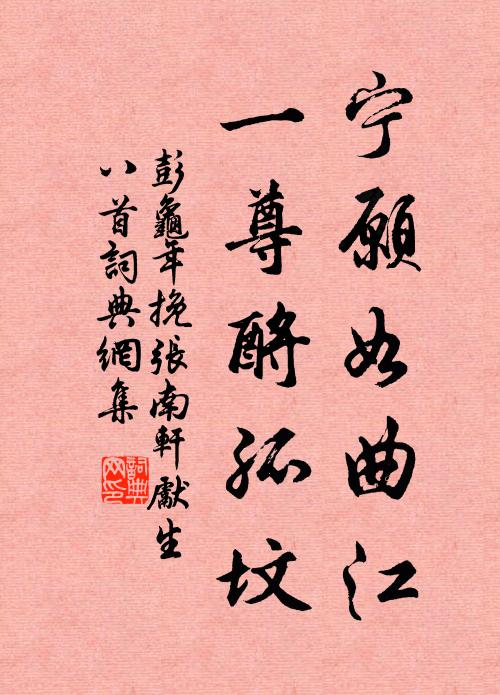 宁愿如曲江
一尊酹孤坟
彭龜年挽張南軒獻生
八首詞典網集
詞典
网印